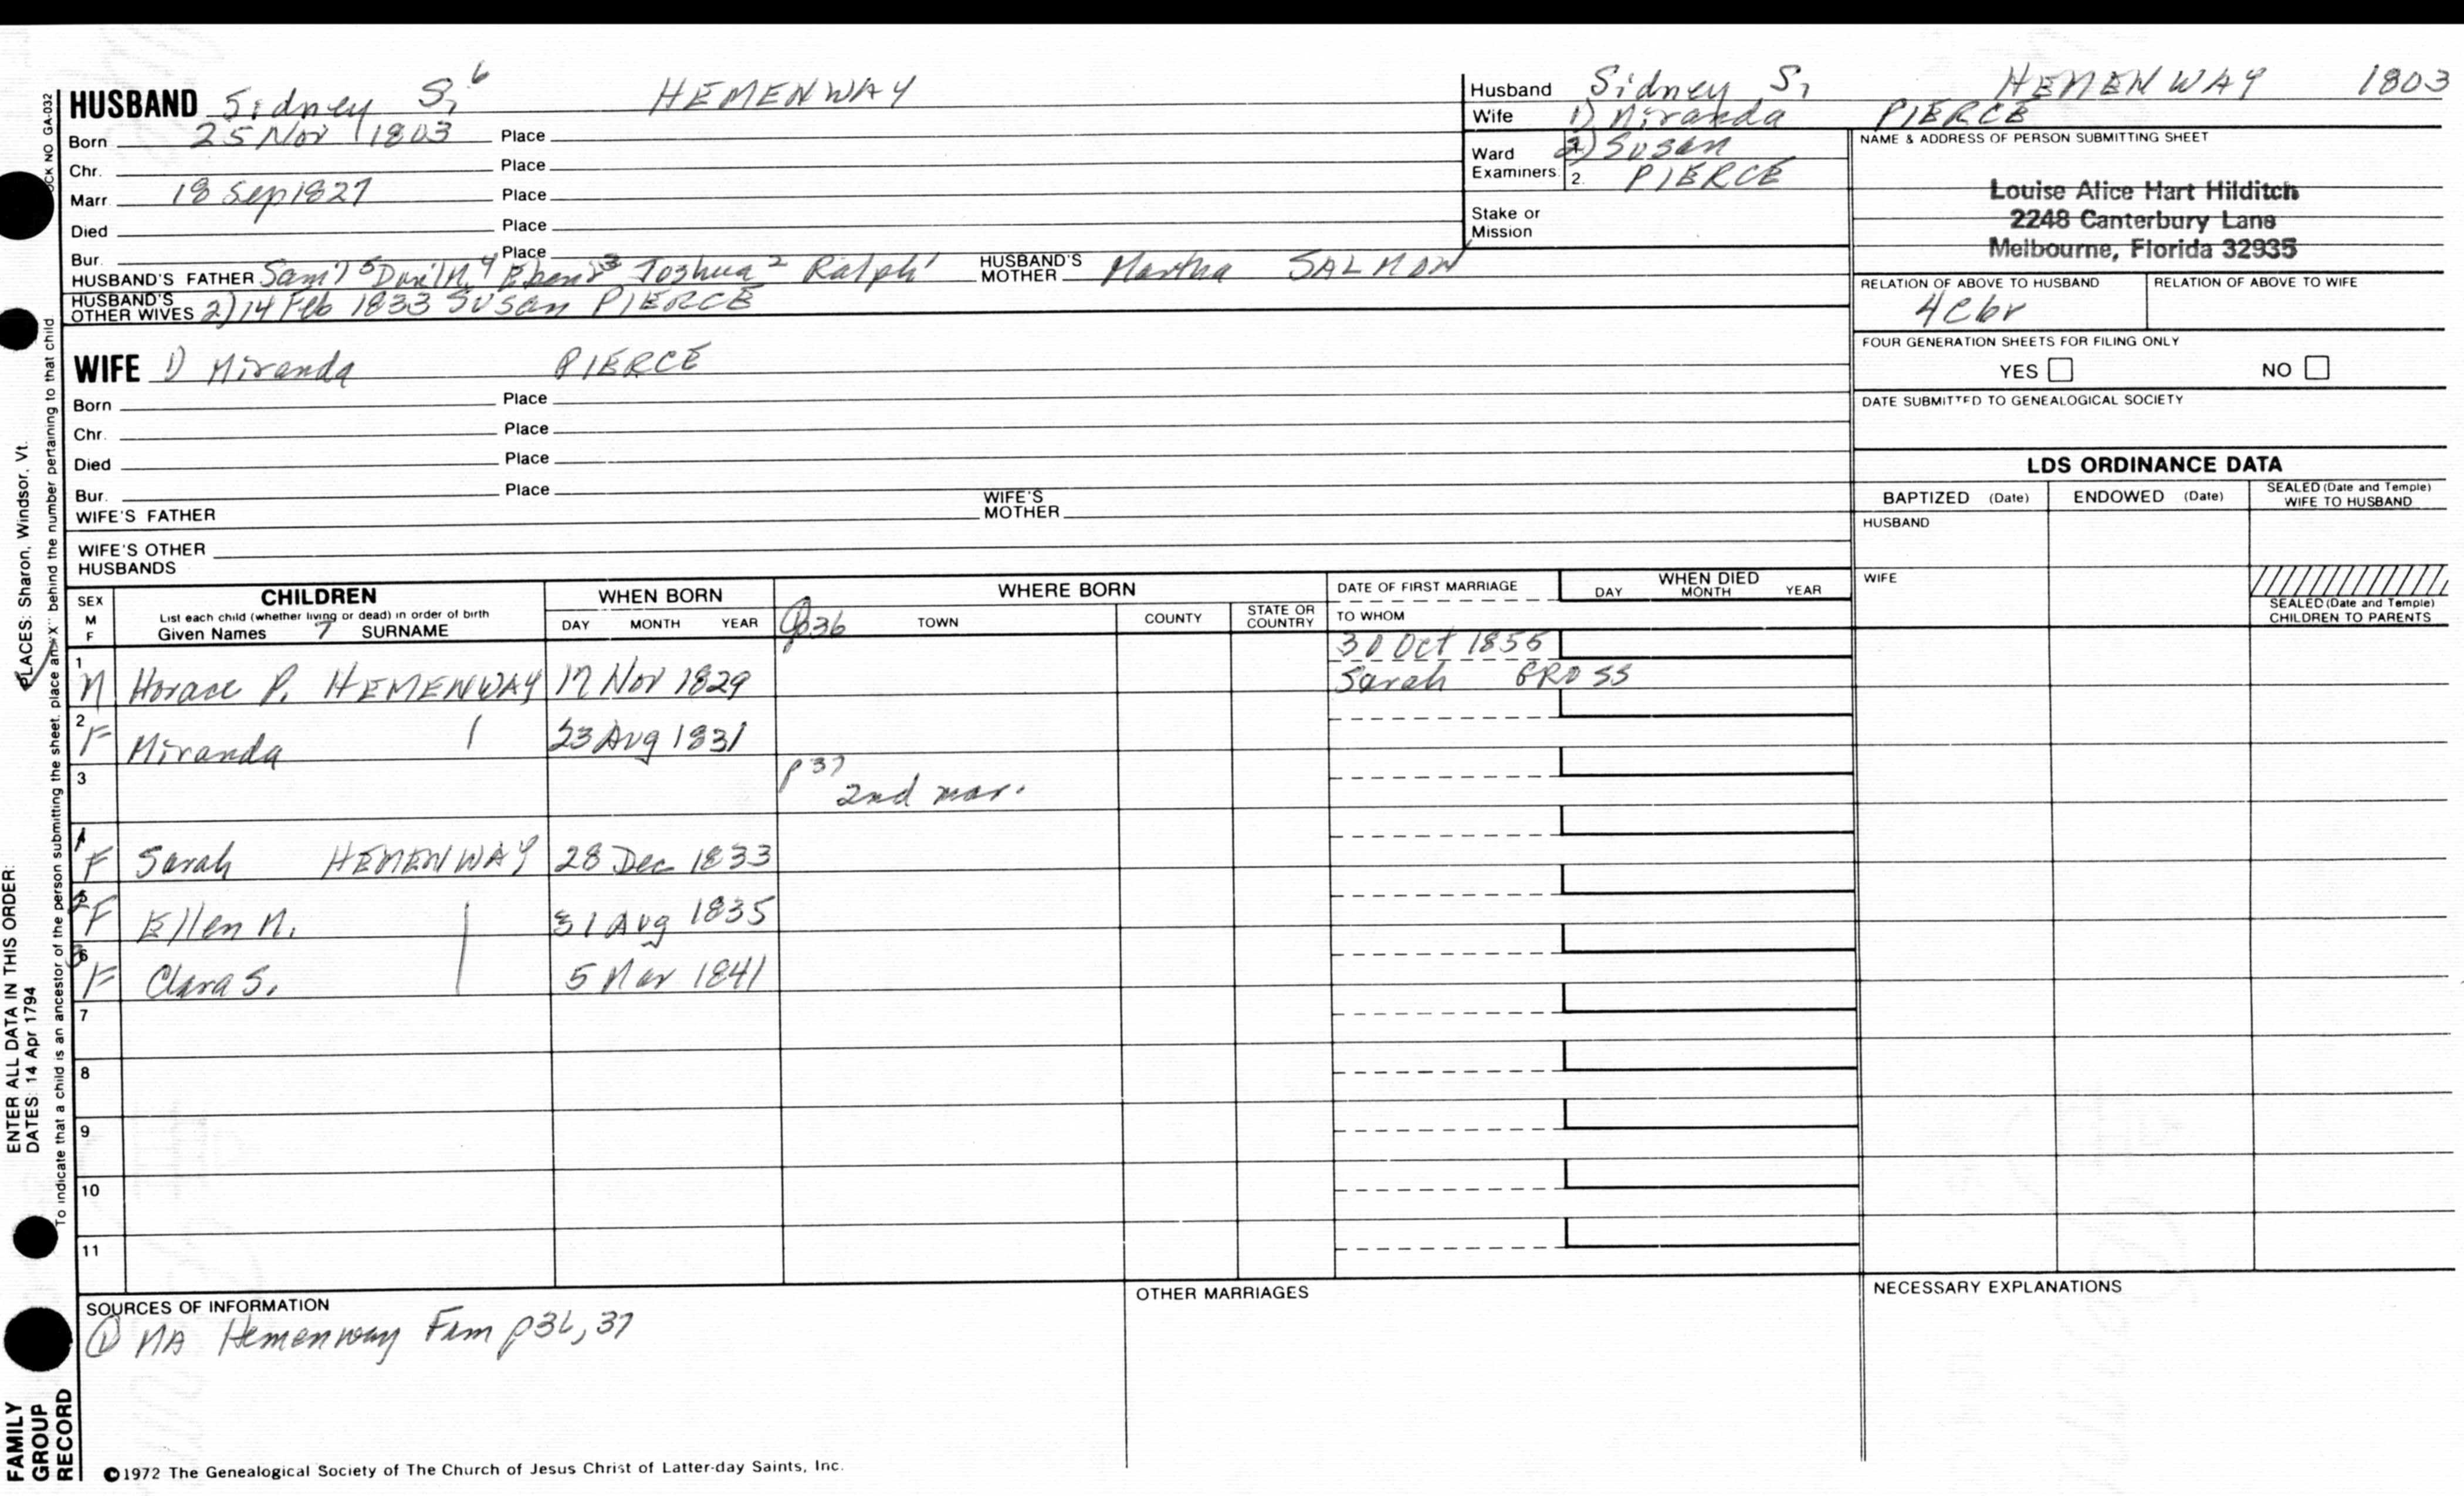 HUSBAND Sidney S. 6 HEMENWAY
Born 25 Nov 1803 Place
Chr. Place
Marr. 18 Sep 1827 Place
Died Place
Bur. Place
HUSBAND'S FATHER Sam'l 5 4 3 Joshua 2 Ralph 1 HUSBAND'S MOTHER Martha SALMON
HUSBAND'S OTHER WIVES 2) 14 Feb 1833 SUSAN PIERCE
WIFE 1) Miranda PIERCE
Born Place
Chr. Place
Died Place
Bur. Place
WIFE'S FATHER WIFE'S MOTHER
WIFE'S OTHER HUSBANDS
Husband Sidney S. HEMENWAY 1803
Wife 1) Miranda PIERCE
Ward Examiners: 2) Susan
2. PIERCE
Stake or Mission
NAME & ADDRESS OF PERSON SUBMITTING SHEET
Louise Alice Hart Hilditch
2248 Canterbury Lane
Melbourne, Florida 32935
RELATION OF ABOVE TO HUSBAND RELATION OF ABOVE TO WIFE
4C6r
FOUR GENERATION SHEETS FOR FILING ONLY
YES NO
DATE SUBMITTED TO GENEALOGICAL SOCIETY
LDS ORDINANCE DATA
BAPTIZED (Date) ENDOWED (Date) SEALED (Date and Temple) WIFE TO HUSBAND
HUSBAND
WIFE
SEALED (Date and Temple) CHILDREN TO PARENTS
SEX M F
CHILDREN
List each child (whether living or dead) in order of birth
Given Names 7 SURNAME
WHEN BORN
DAY MONTH YEAR
WHERE BORN
p36 TOWN COUNTY STATE OR COUNTRY
DATE OF FIRST MARRIAGE
TO WHOM
WHEN DIED
DAY MONTH YEAR
1 M Horace P. HEMENWAY 17 Nov 1829 30 Oct 1856
Sarah GROSS
2 F Miranda 23 Aug 1831
3 p37
2nd mar.
1 F Sarah HEMENWAY 28 Dec 1833
2 F Ellen M. 31 Aug 1835
3 6 F Clara S. 5 Mar 1841
7
8
9
10
11
SOURCES OF INFORMATION
① MA Hemenway Fam p36, 37
OTHER MARRIAGES
NECESSARY EXPLANATIONS
©1972 The Genealogical Society of The Church of Jesus Christ of Latter-day Saints, Inc.
FAMILY GROUP RECORD
ENTER ALL DATA IN THIS ORDER:
DATES: 14 Apr 1794
PLACES: Sharon, Windsor, Vt.
To indicate that a child is an ancestor of the person submitting the sheet, place an "X" behind the number pertaining to that child
NO GA-032